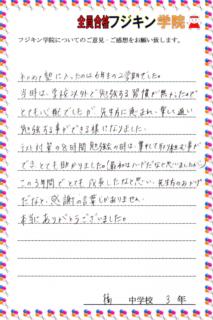 全員合格フジキン学院
フジキン学院についてのご意見・ご感想をお願い致します。
私がこの塾に入ったのは6年生の2学期でした。
当時は、学校以外で勉強する習慣が無かったので
とても心配でしたが、先生方に恵まれ、楽しく通い
勉強する事ができる様になりました。
テスト対策の8時間勉強会の時は、集中して取り組む事が
でき、とても助かりました。(最初はハードだなと思いましたが)
この3年間でとても成長したなと思い、先生方のおかげ
だなと、感謝の言葉しかありません。
本当にありがとうございました。
中学校 3年